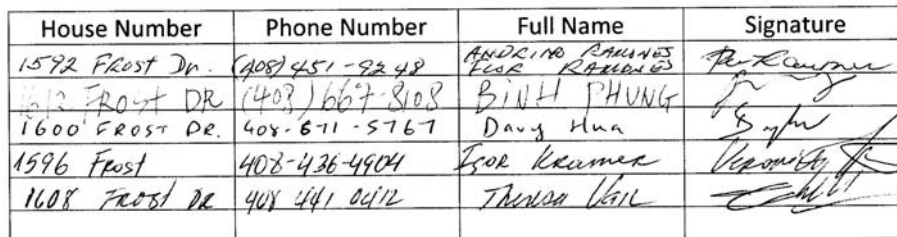 House Number Phone Number Full Name Signature
1592 FROST Dr. (408) 451-9248 ANDRINO RAMONES
FLOR RAMONES
1612 FROST DR (408) 667-8108 BINH PHUNG
1600 FROST DR. 408-671-5767 Davy Hua
1596 Frost 408-436-4904 Igor Kramer
1608 FROST DR 408 441 0412 Theresa Vail